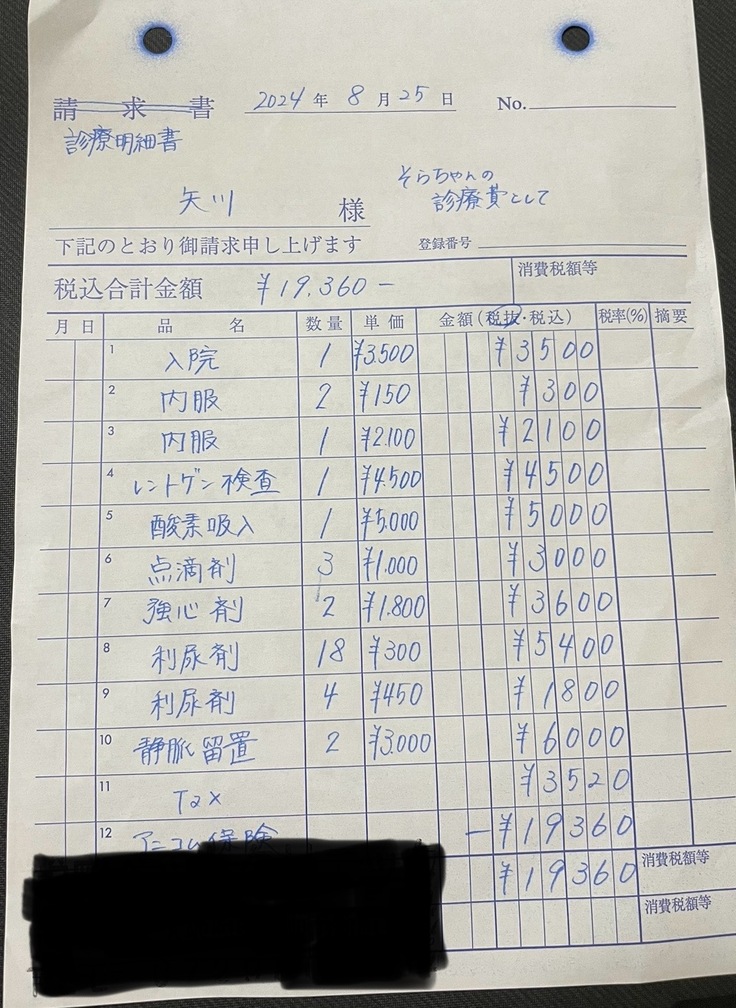 請求書 2024年8月25日 No.
診療明細書
そらちゃんの
診療費として
矢川 様
下記のとおり御請求申し上げます 登録番号
税込合計金額 ¥19,360- 消費税額等
月 日 品名 数量 単価 金額(税抜・税込) 税率(%) 摘要
1 入院 1 ¥3,500 ¥3500
2 内服 2 ¥150 ¥300
3 内服 1 ¥2,100 ¥2100
4 レントゲン検査 1 ¥4,500 ¥4500
5 酸素吸入 1 ¥5,000 ¥5000
6 点滴剤 3 ¥1,000 ¥3000
7 強心剤 2 ¥1,800 ¥3600
8 利尿剤 18 ¥300 ¥5400
9 利尿剤 4 ¥450 ¥1800
10 静脈留置 2 ¥3,000 ¥6000
11 Tax ¥3520
12 アニコム保険 -¥19360
¥19360 消費税額等
消費税額等